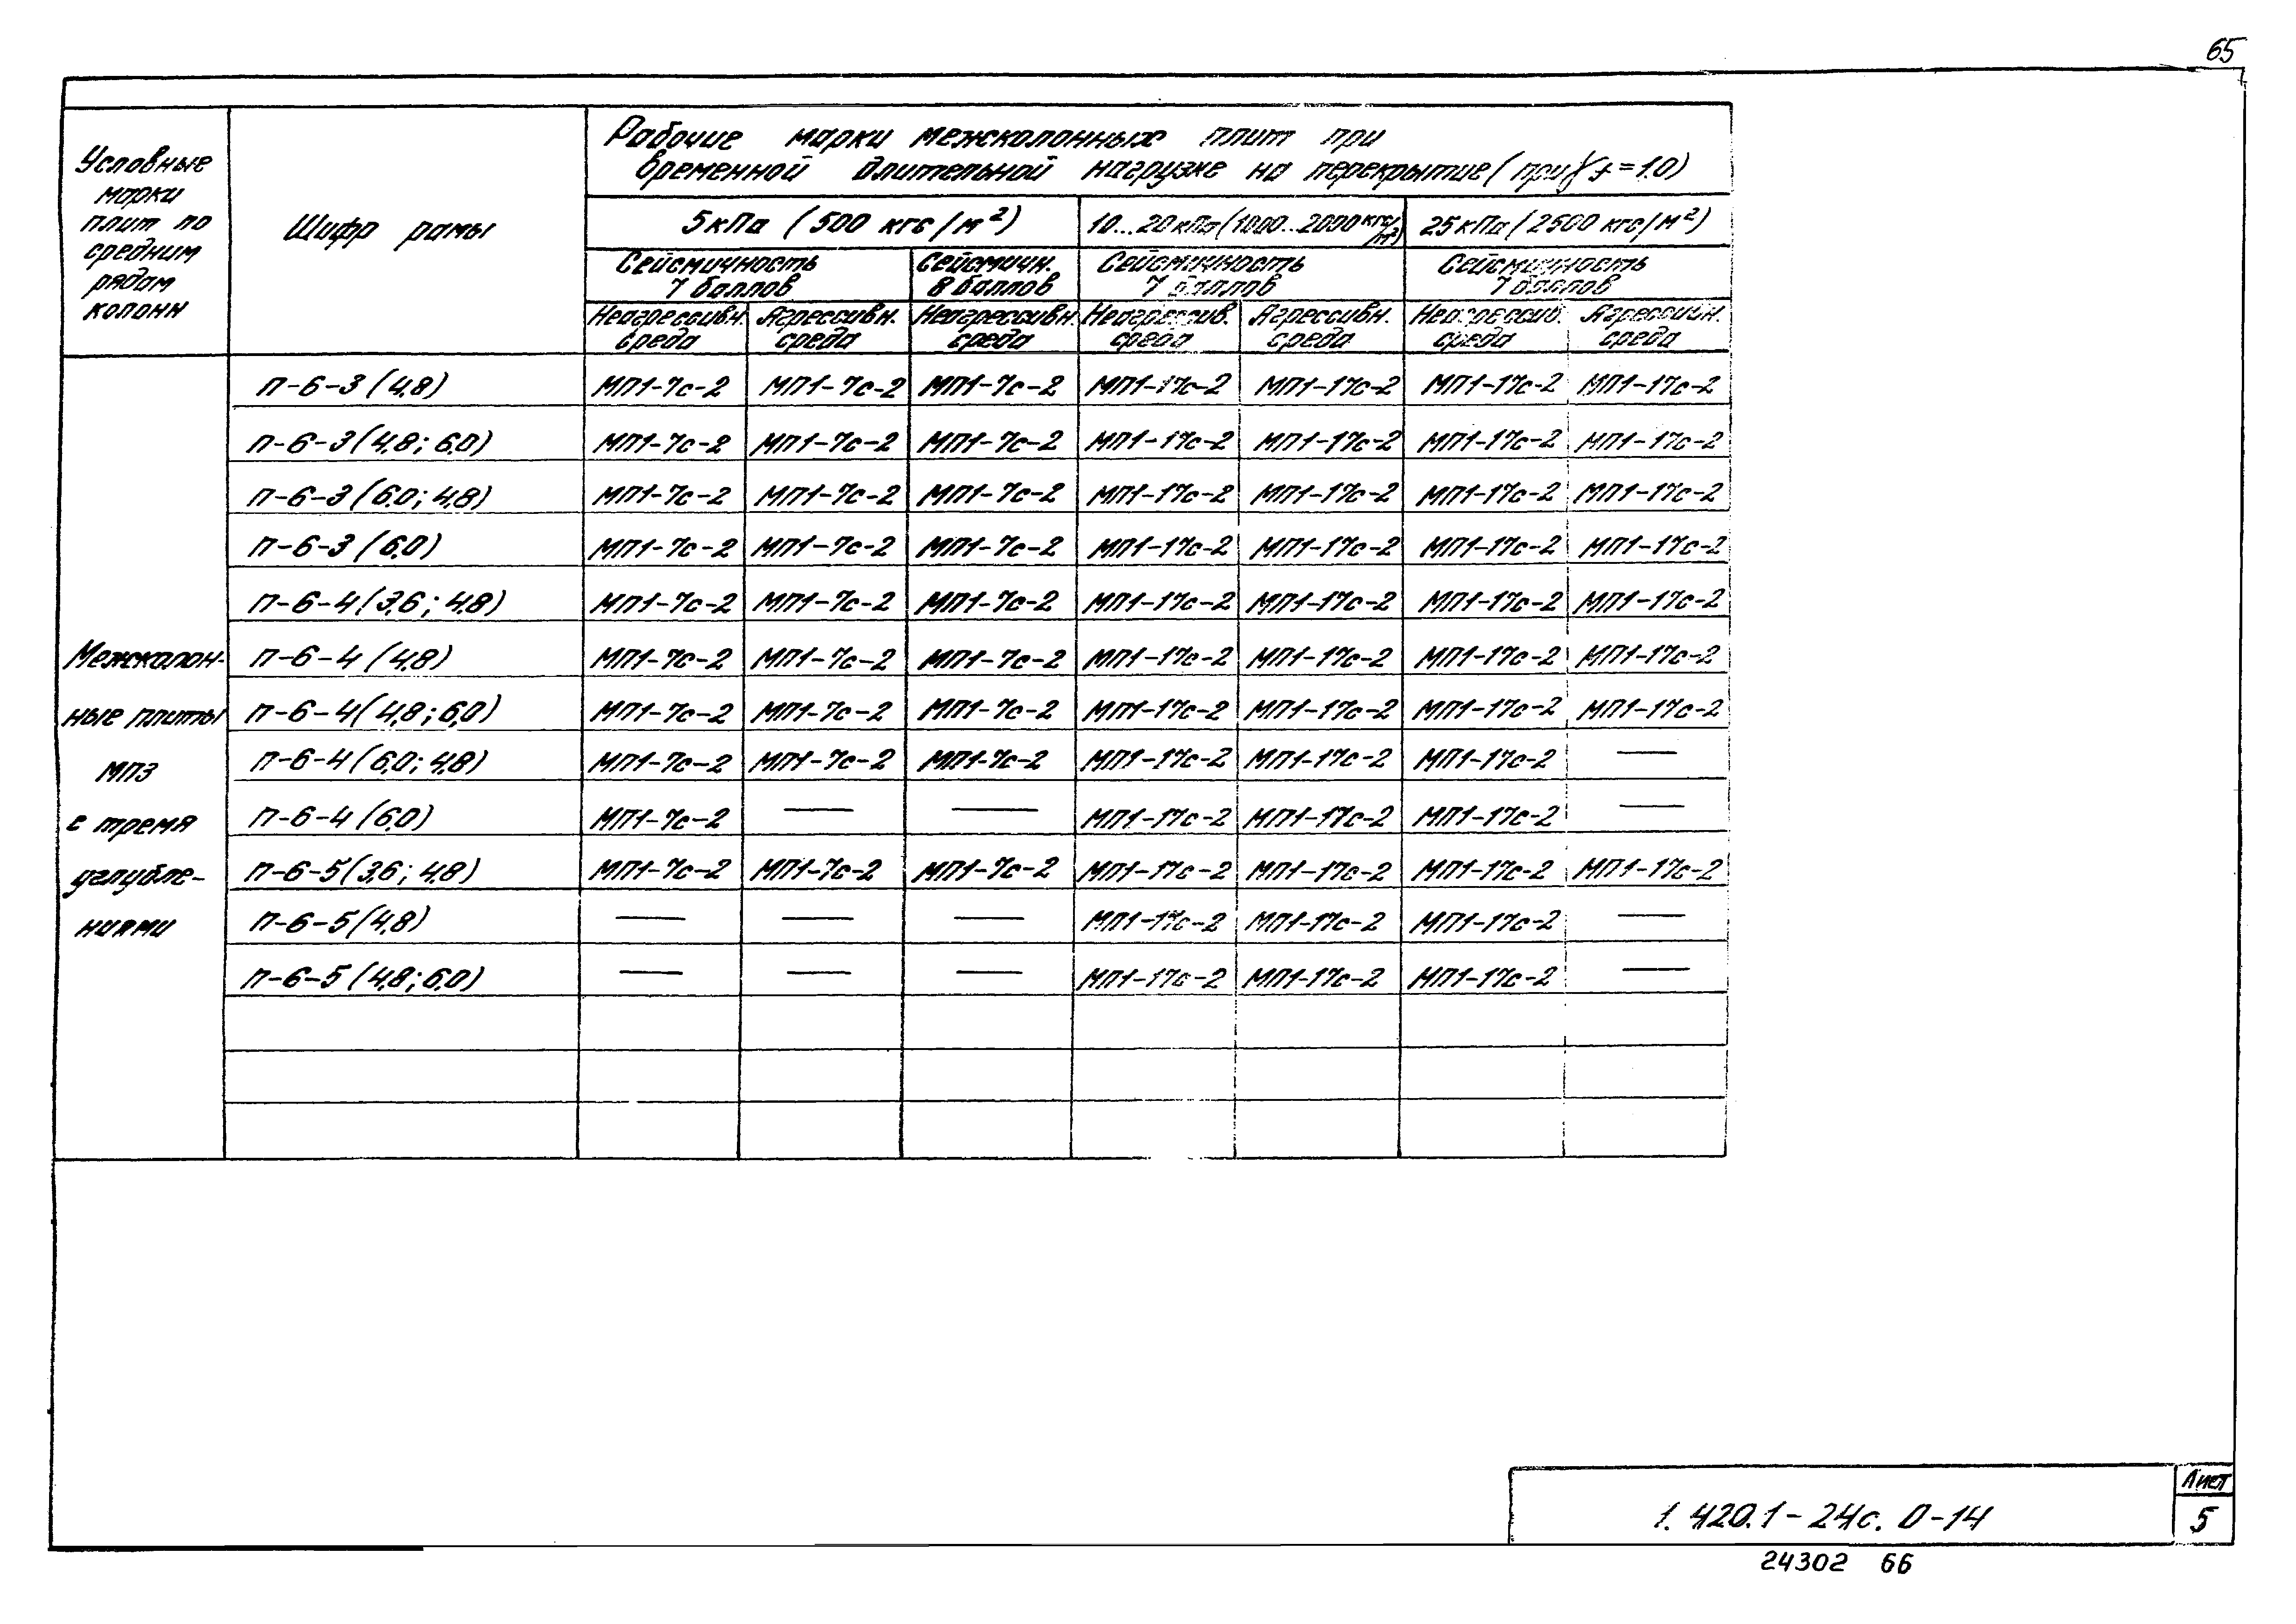 65
Условные
марки
плит по
средним
рядам
колонн
Шифр рамы
Рабочие марки межсколонных плит при
временной длительной нагрузке на перекрытие (при γf=1.0)
5кПа (500 кгс/м²)
10...20кПа (1000...2000 кгс/м²)
25кПа (2500 кгс/м²)
Сейсмичность
7 баллов
Сейсмичн.
8 баллов
Сейсмичность
7 баллов
Сейсмичность
7 баллов
Неагрессивн.
среда
Агрессивн.
среда
Неагрессивн.
среда
Неагрессив.
среда
Агрессивн.
среда
Неагрессив.
среда
Агрессивн.
среда
Межсколон-
ные плиты
МП3
с тремя
углубле-
ниями
П-6-3 (4,8) МП1-7с-2 МП1-7с-2 МП1-7с-2 МП1-17с-2 МП1-17с-2 МП1-17с-2 МП1-17с-2
П-6-3 (4,8; 6,0) МП1-7с-2 МП1-7с-2 МП1-7с-2 МП1-17с-2 МП1-17с-2 МП1-17с-2 МП1-17с-2
П-6-3 (6,0; 4,8) МП1-7с-2 МП1-7с-2 МП1-7с-2 МП1-17с-2 МП1-17с-2 МП1-17с-2 МП1-17с-2
П-6-3 (6,0) МП1-7с-2 МП1-7с-2 МП1-7с-2 МП1-17с-2 МП1-17с-2 МП1-17с-2 МП1-17с-2
П-6-4 (3,6; 4,8) МП1-7с-2 МП1-7с-2 МП1-7с-2 МП1-17с-2 МП1-17с-2 МП1-17с-2 МП1-17с-2
П-6-4 (4,8) МП1-7с-2 МП1-7с-2 МП1-7с-2 МП1-17с-2 МП1-17с-2 МП1-17с-2 МП1-17с-2
П-6-4 (4,8; 6,0) МП1-7с-2 МП1-7с-2 МП1-7с-2 МП1-17с-2 МП1-17с-2 МП1-17с-2 МП1-17с-2
П-6-4 (6,0; 4,8) МП1-7с-2 МП1-7с-2 МП1-7с-2 МП1-17с-2 МП1-17с-2 МП1-17с-2 —
П-6-4 (6,0) МП1-7с-2 — — МП1-17с-2 МП1-17с-2 МП1-17с-2 —
П-6-5 (3,6; 4,8) МП1-7с-2 МП1-7с-2 МП1-7с-2 МП1-17с-2 МП1-17с-2 МП1-17с-2 МП1-17с-2
П-6-5 (4,8) — — — МП1-17с-2 МП1-17с-2 МП1-17с-2 —
П-6-5 (4,8; 6,0) — — — МП1-17с-2 МП1-17с-2 МП1-17с-2 —
1.420.1-24с.0-14
Лист
5
24302 66